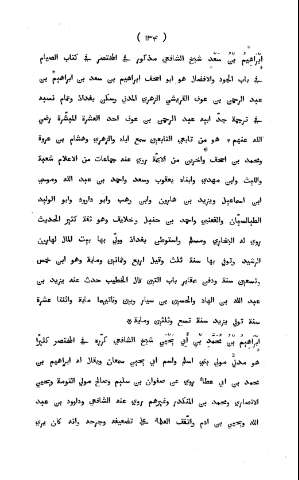 ( ١٣٤ )
ابراهيم بن سعد شيخ الشافعي مذكور في المختصر في كتاب الصيام
في باب الجود والافضال هو ابو اسحق ابراهيم بن سعد بن ابراهيم بن
عبد الرحمن بن عوف القرشي الزهري المدني وسكن بغداد وتمام نسبه
في ترجمة جد ابيه عبد الرحمن بن عوف احد العشرة المبشرة رضي
الله عنهم ٭ هو من تابعي التابعين سمع اباه والزهري وهشام بن عروة
ومحمد بن اسحق واخرين من الائمة روي عنه جماعات من الاعلام شعبة
والليث وابن مهدي وابناه يعقوب وسعد واحمد بن عبد الله وموسي
ابن اسماعيل ويزيد بن هارون وابن رهب وابو داود وابو الوليد
الطيالسيان والقعنبي واحمد بن حنبل وخلايف وهو ثقة كثير الحديث
روي له البخاري ومسلم واستوطن بغداد وولي بها بيت المال لهارون
الرشيد وتوفي بها سنة ثلث وقيل اربع وثمانين وماية وهو ابن خمس
وسبعين سنة ودفن بمقابر باب التبن قال الخطيب حدث عنه يزيد بن
عبد الله بن الهاد والحسين بن سيار وبين وفاتيهما ماية واثنتا عشرة
سنة توفي يزيد سنة تسع وثلثين وماية ٭
ابراهيم بن محمد بن ابي يحيي شيخ الشافعي كرره في المختصر كثيرا
هو مدني مولي بني اسلم واسم ابي يحيي سمعان ويقال له ابراهيم بن
محمد بن ابي عطا روي عن صفوان بن سليم وصالح مولي التومة ويحيي
الانصاري ومحمد بن المنكدر وغيرهم روي عنه الشافعي وداود بن عبد
الله ويحيي بن ادم واتفق العلما علي تضعيفه وجرحه وانه كان يري